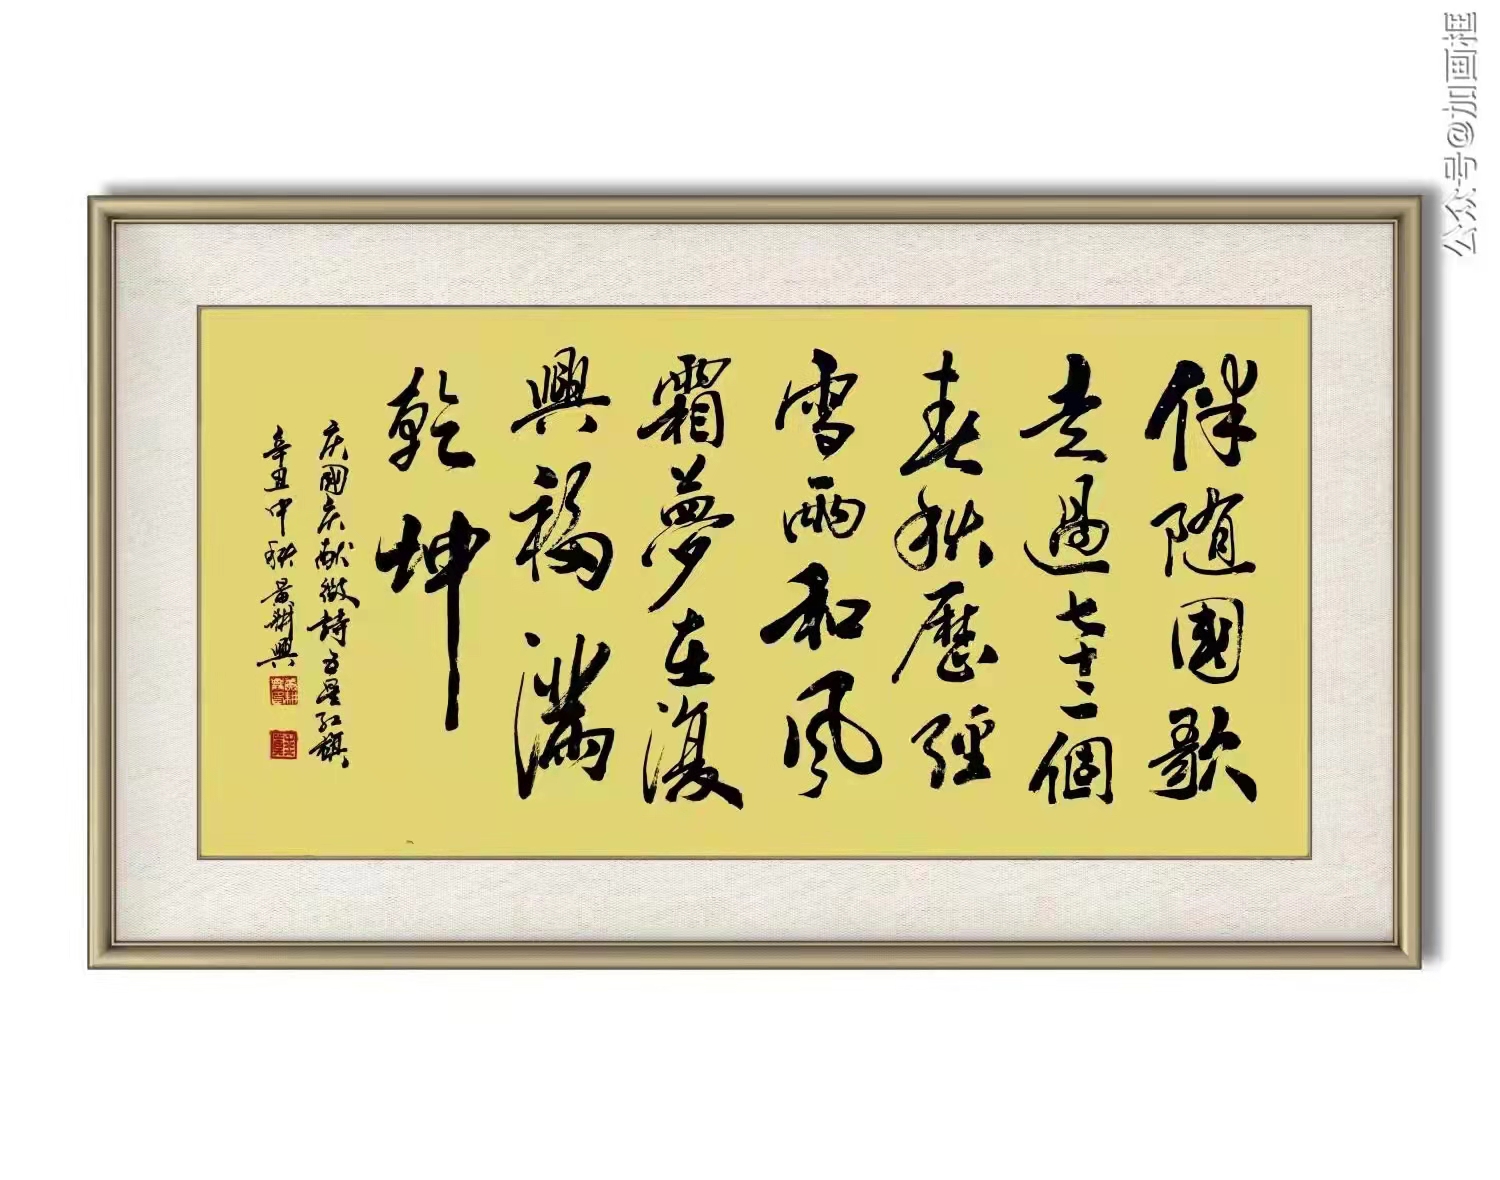 伴随國歌
走過七十二個
春秋歷經
雪雨和風
霜夢在復
興福滿
乾坤
庆國庆献微詩五星红旗
辛丑中秋黄耕興
公众号@加画框